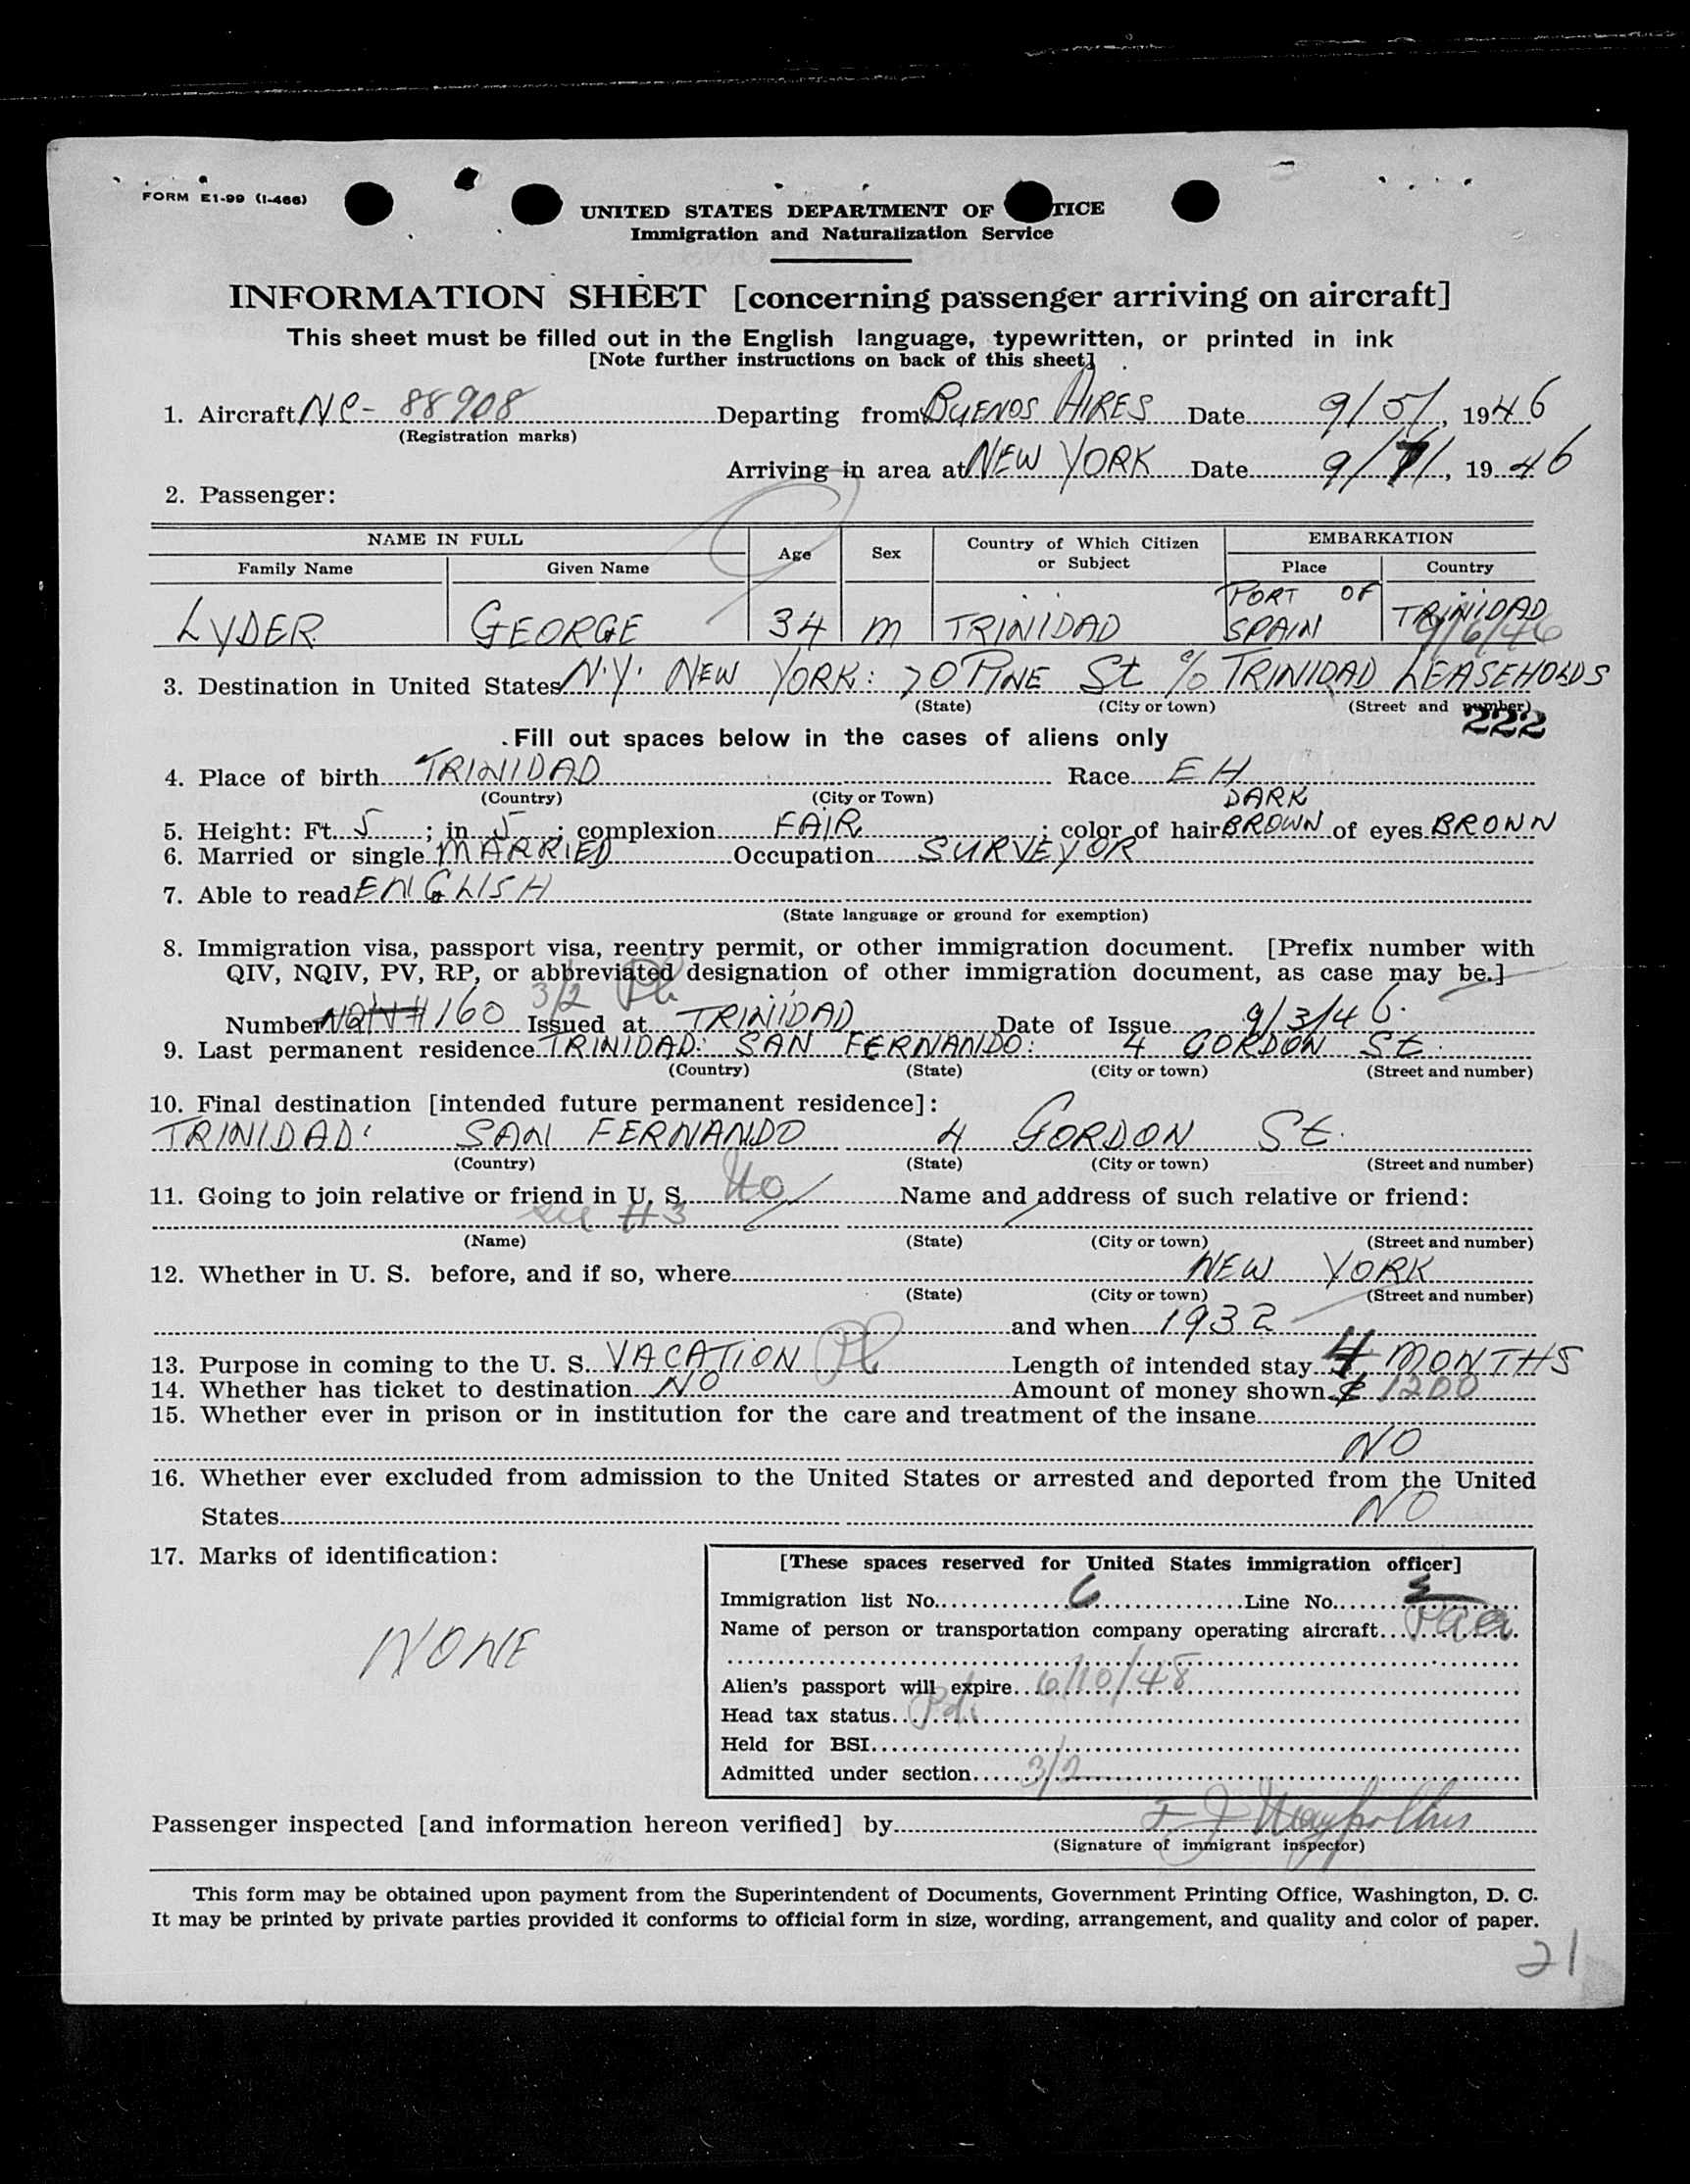 FORM E1-99 (I-466)
UNITED STATES DEPARTMENT OF TICE
Immigration and Naturalization Service
INFORMATION SHEET [concerning passenger arriving on aircraft]
This sheet must be filled out in the English language, typewritten, or printed in ink
[Note further instructions on back of this sheet]
1. Aircraft NC- 88908 Departing from BUENOS AIRES Date 9/5/, 1946
(Registration marks)
Arriving in area at NEW YORK Date 9/7/, 1946
2. Passenger:
NAME IN FULL Age Sex Country of Which Citizen or Subject EMBARKATION
Family Name Given Name Place Country
LYDER GEORGE 34 M TRINIDAD PORT OF SPAIN TRINIDAD
9/6/46
3. Destination in United States N.Y. NEW YORK: 70 PINE St c/o TRINIDAD LEASEHOLDS
(State) (City or town) (Street and number)
222
Fill out spaces below in the cases of aliens only
4. Place of birth TRINIDAD Race EH
(Country) (City or Town)
DARK
5. Height: Ft. 5; in 5; complexion FAIR; color of hair BROWN of eyes BROWN
6. Married or single MARRIED Occupation SURVEYOR
7. Able to read ENGLISH
(State language or ground for exemption)
8. Immigration visa, passport visa, reentry permit, or other immigration document. [Prefix number with
QIV, NQIV, PV, RP, or abbreviated designation of other immigration document, as case may be.]
3/2
Number 160 Issued at TRINIDAD Date of Issue 9/3/46.
9. Last permanent residence TRINIDAD: SAN FERNANDO: 4 GORDON St.
(Country) (State) (City or town) (Street and number)
10. Final destination [intended future permanent residece]:
TRINIDAD: SAN FERNANDO 4 GORDON St.
(Country) (State) (City or town) (Street and number)
11. Going to join relative or friend in U. S. No Name and address of such relative or friend:
see #3
(Name) (State) (City or town) (Street and number)
12. Whether in U. S. before, and if so, where NEW YORK
(State) (City or town) (Street and number)
and when 1932
13. Purpose in coming to the U. S. VACATION Length of intended stay 4 MONTHS
14. Whether has ticket to destination NO Amount of money shown $ 1200
15. Whether ever in prison or in institution for the care and treatment of the insane
NO
16. Whether ever excluded from admission to the United States or arrested and deported from the United
States NO
17. Marks of identification:
NONE
[These spaces reserved for United States immigration officer]
Immigration list No. 6 Line No.
Name of person or transportation company operating aircraft Paa
Alien's passport will expire 6/10/48
Head tax status Pd.
Held for BSI
Admitted under section 3/2
Passenger inspected [and information hereon verified] by
(Signature of immigrant inspector)
This form may be obtained upon payment from the Superintendent of Documents, Government Printing Office, Washington, D. C.
It may be printed by private parties provided it conforms to official form in size, wording, arrangement, and quality and color of paper.
21